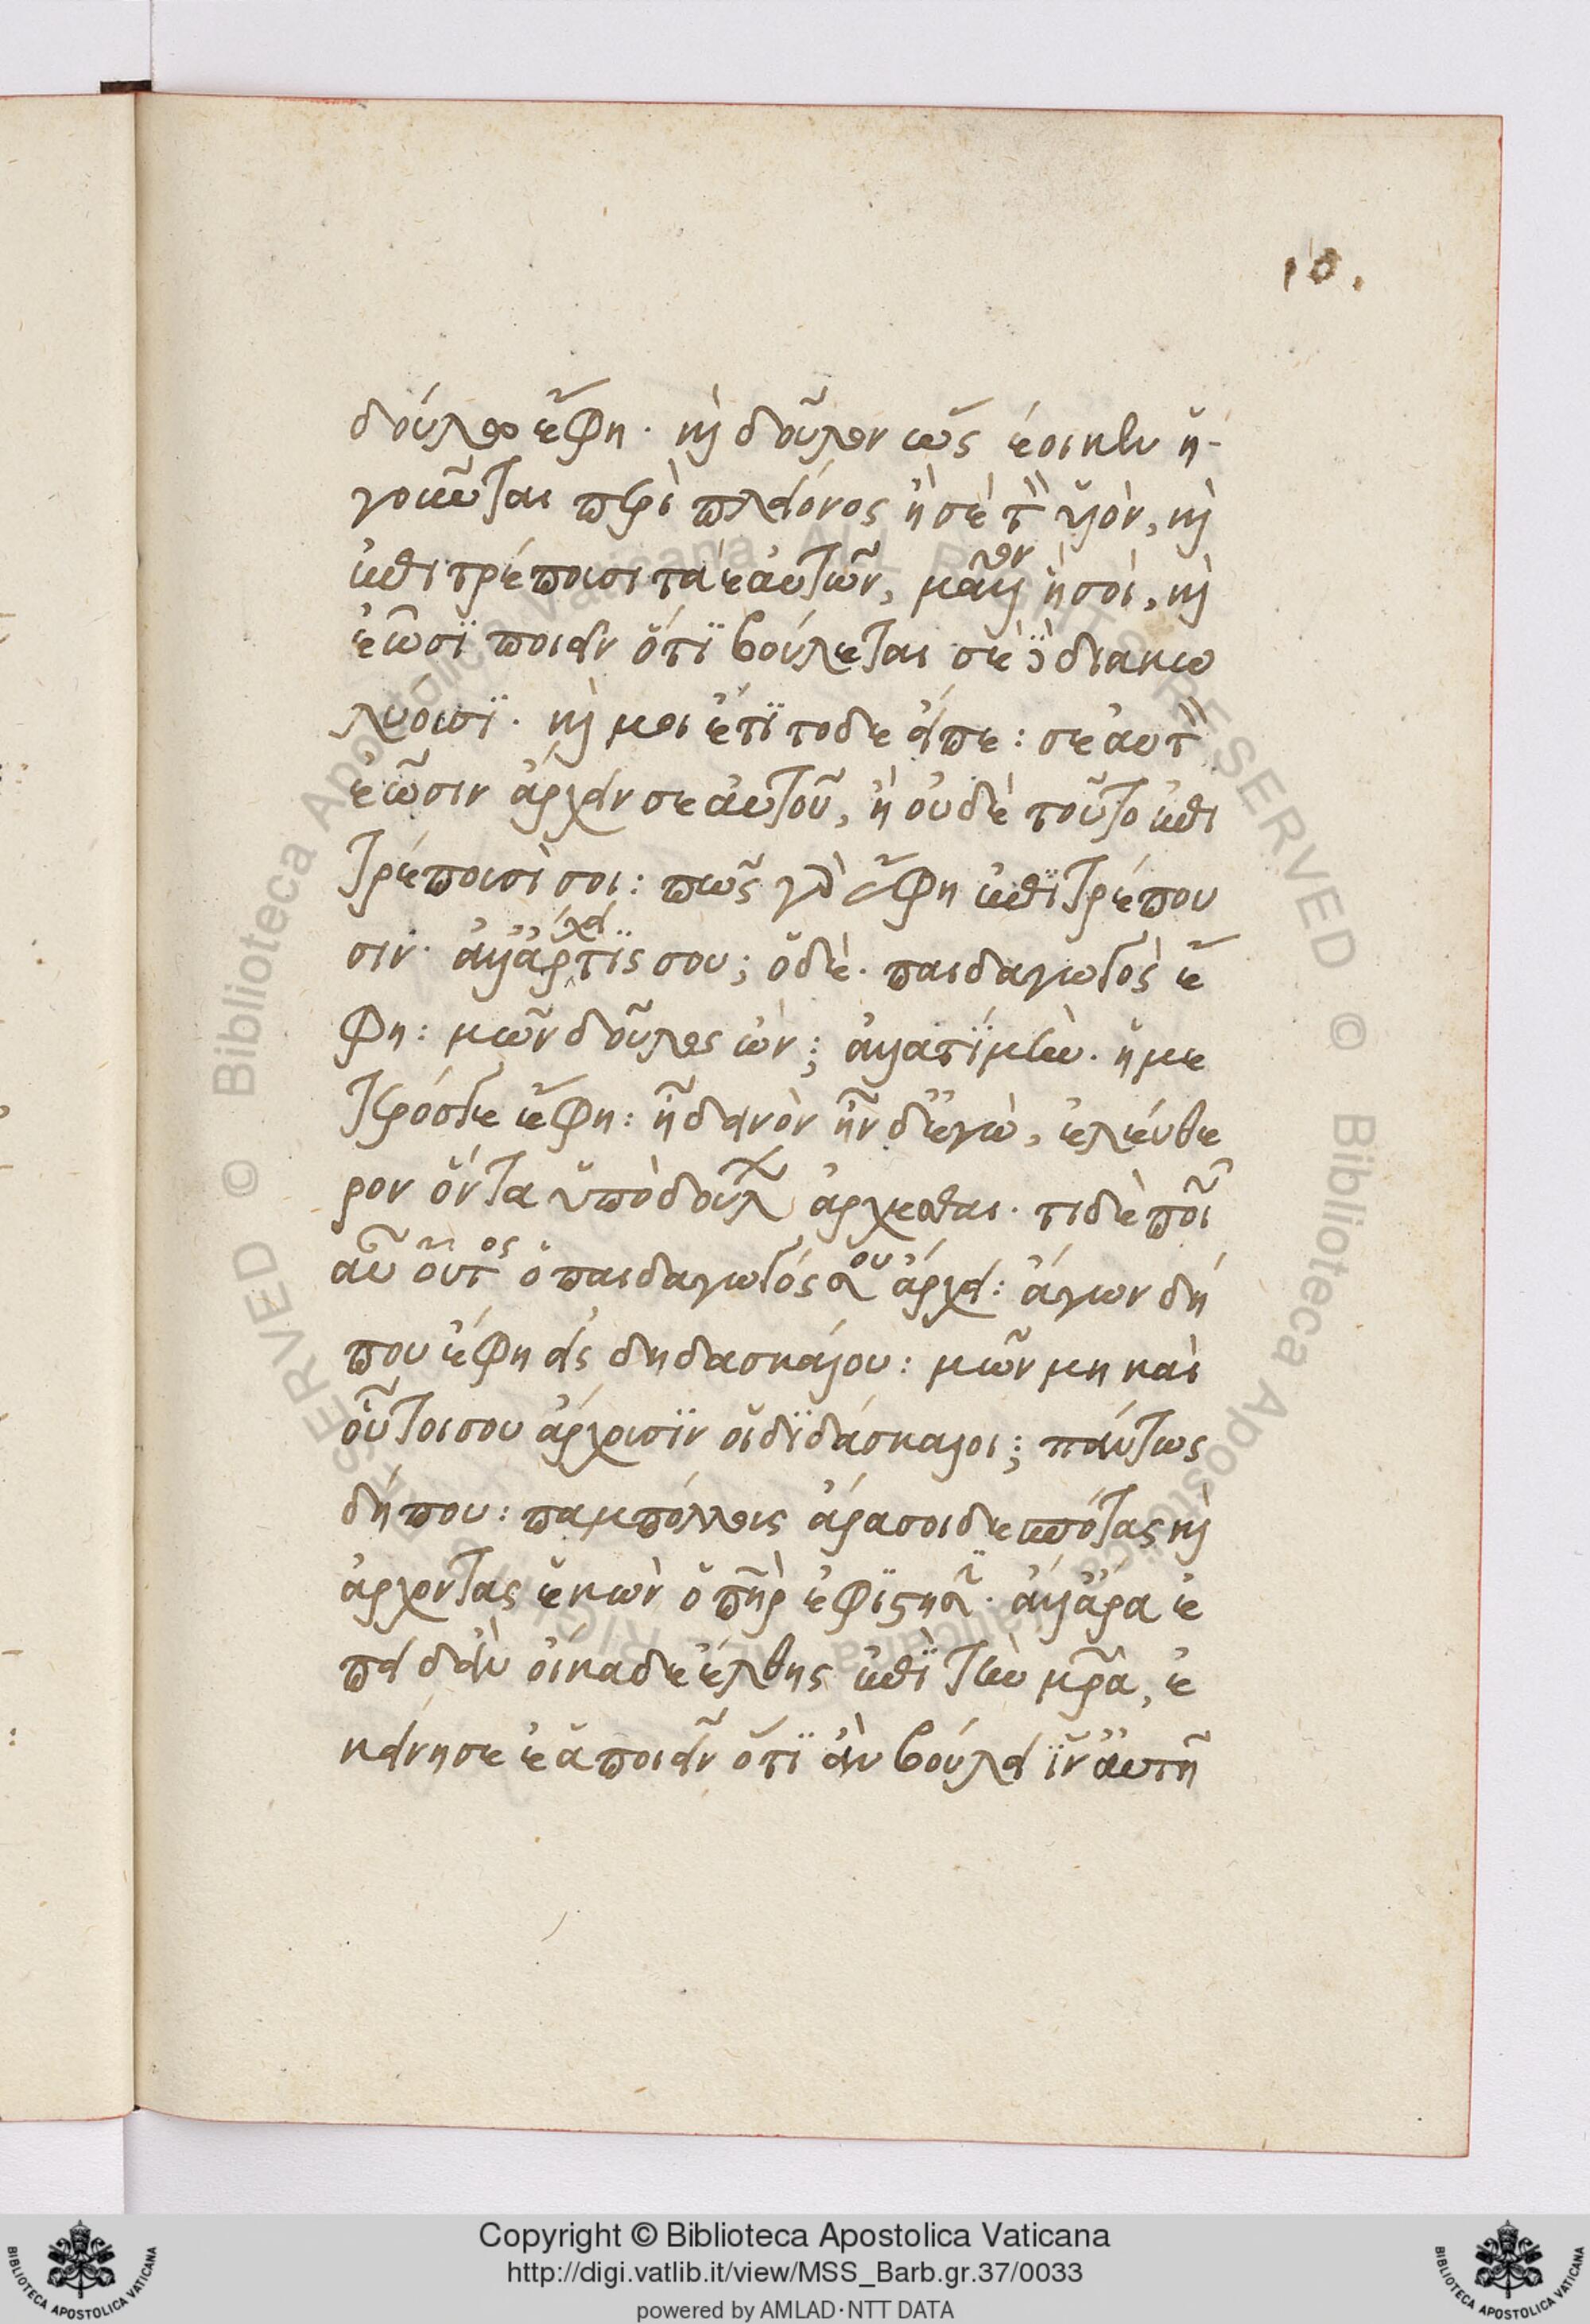 10.
δούλος ἔφη · καὶ δοῦλον ὡς ἔοικεν ἡ-
γοῦνται περὶ πλείονος ἢ σὲ τὸν υἱὸν, καὶ
ἐπιτρέπουσι τὰ ἑαυτῶν, μᾶλλον ἢ σοὶ, καὶ
ἐῶσϊ ποιεῖν ὅτϊ βούλεται σὲ δὲ διακω
λύουσϊ · καί μοι ἔτϊ τοδε εἰπε : σε αυτὸν
ἐῶσιν ἄρχειν σεαυτοῦ, ἢ οὐδὲ τοῦτο ἐπι
τρέπουσί σοι : πῶς γὰρ ἔφη ἐπϊτρέπου
σιν · ἀλλ' ἄρχει τϊς σου ; ὅδε · παιδαγωγὸς ἔ
φη : μῶν δοῦλος ὤν ; ἀλλα τϊ μὴν · ἡμε
τερόσγε ἔφη : ἦ δεινὸν ἦν δ'ἐγὼ, ἐλεύθε
ρον ὄντα ὑπὸ δούλου ἄρχεσθαι · τι δὲ ποιῶν
αὖ οὗτος ὁ παιδαγωγός σου ἄρχει : ἄγων δή
που ἔφη εἰς δηδασκάλου : μῶν μη καὶ
οὗτοι σου ἄρχουσϊν οἱ δϊδάσκαλοι ; πάντως
δήπου : παμπόλλους ἄρα σοι δεσπότας καὶ
ἄρχοντας ἑκὼν ὁ πατὴρ ἐφϊστησιν · ἀλλ' ἄρα ἐ
πειδὰν οἴκαδε ἔλθης ἐπϊ τὴν μητέρα, ἐ
κείνη σε ἐᾶ ποιεῖν ὅτϊ ἂν βούλει ϊν' αὐτῆ
Copyright © Biblioteca Apostolica Vaticana
http://digi.vatlib.it/view/MSS_Barb.gr.37/0033
powered by AMLAD·NTT DATA